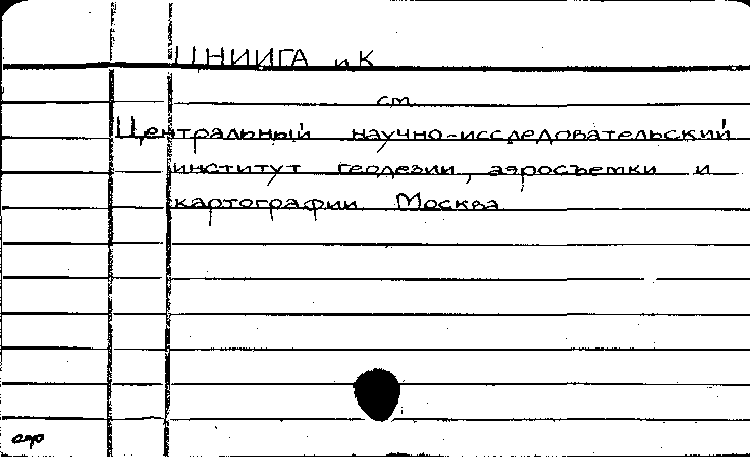 ЦНИИГА и К
см
Центральный научно-исследовательский
институт геодезии, аэросъемки и
картографии. Москва